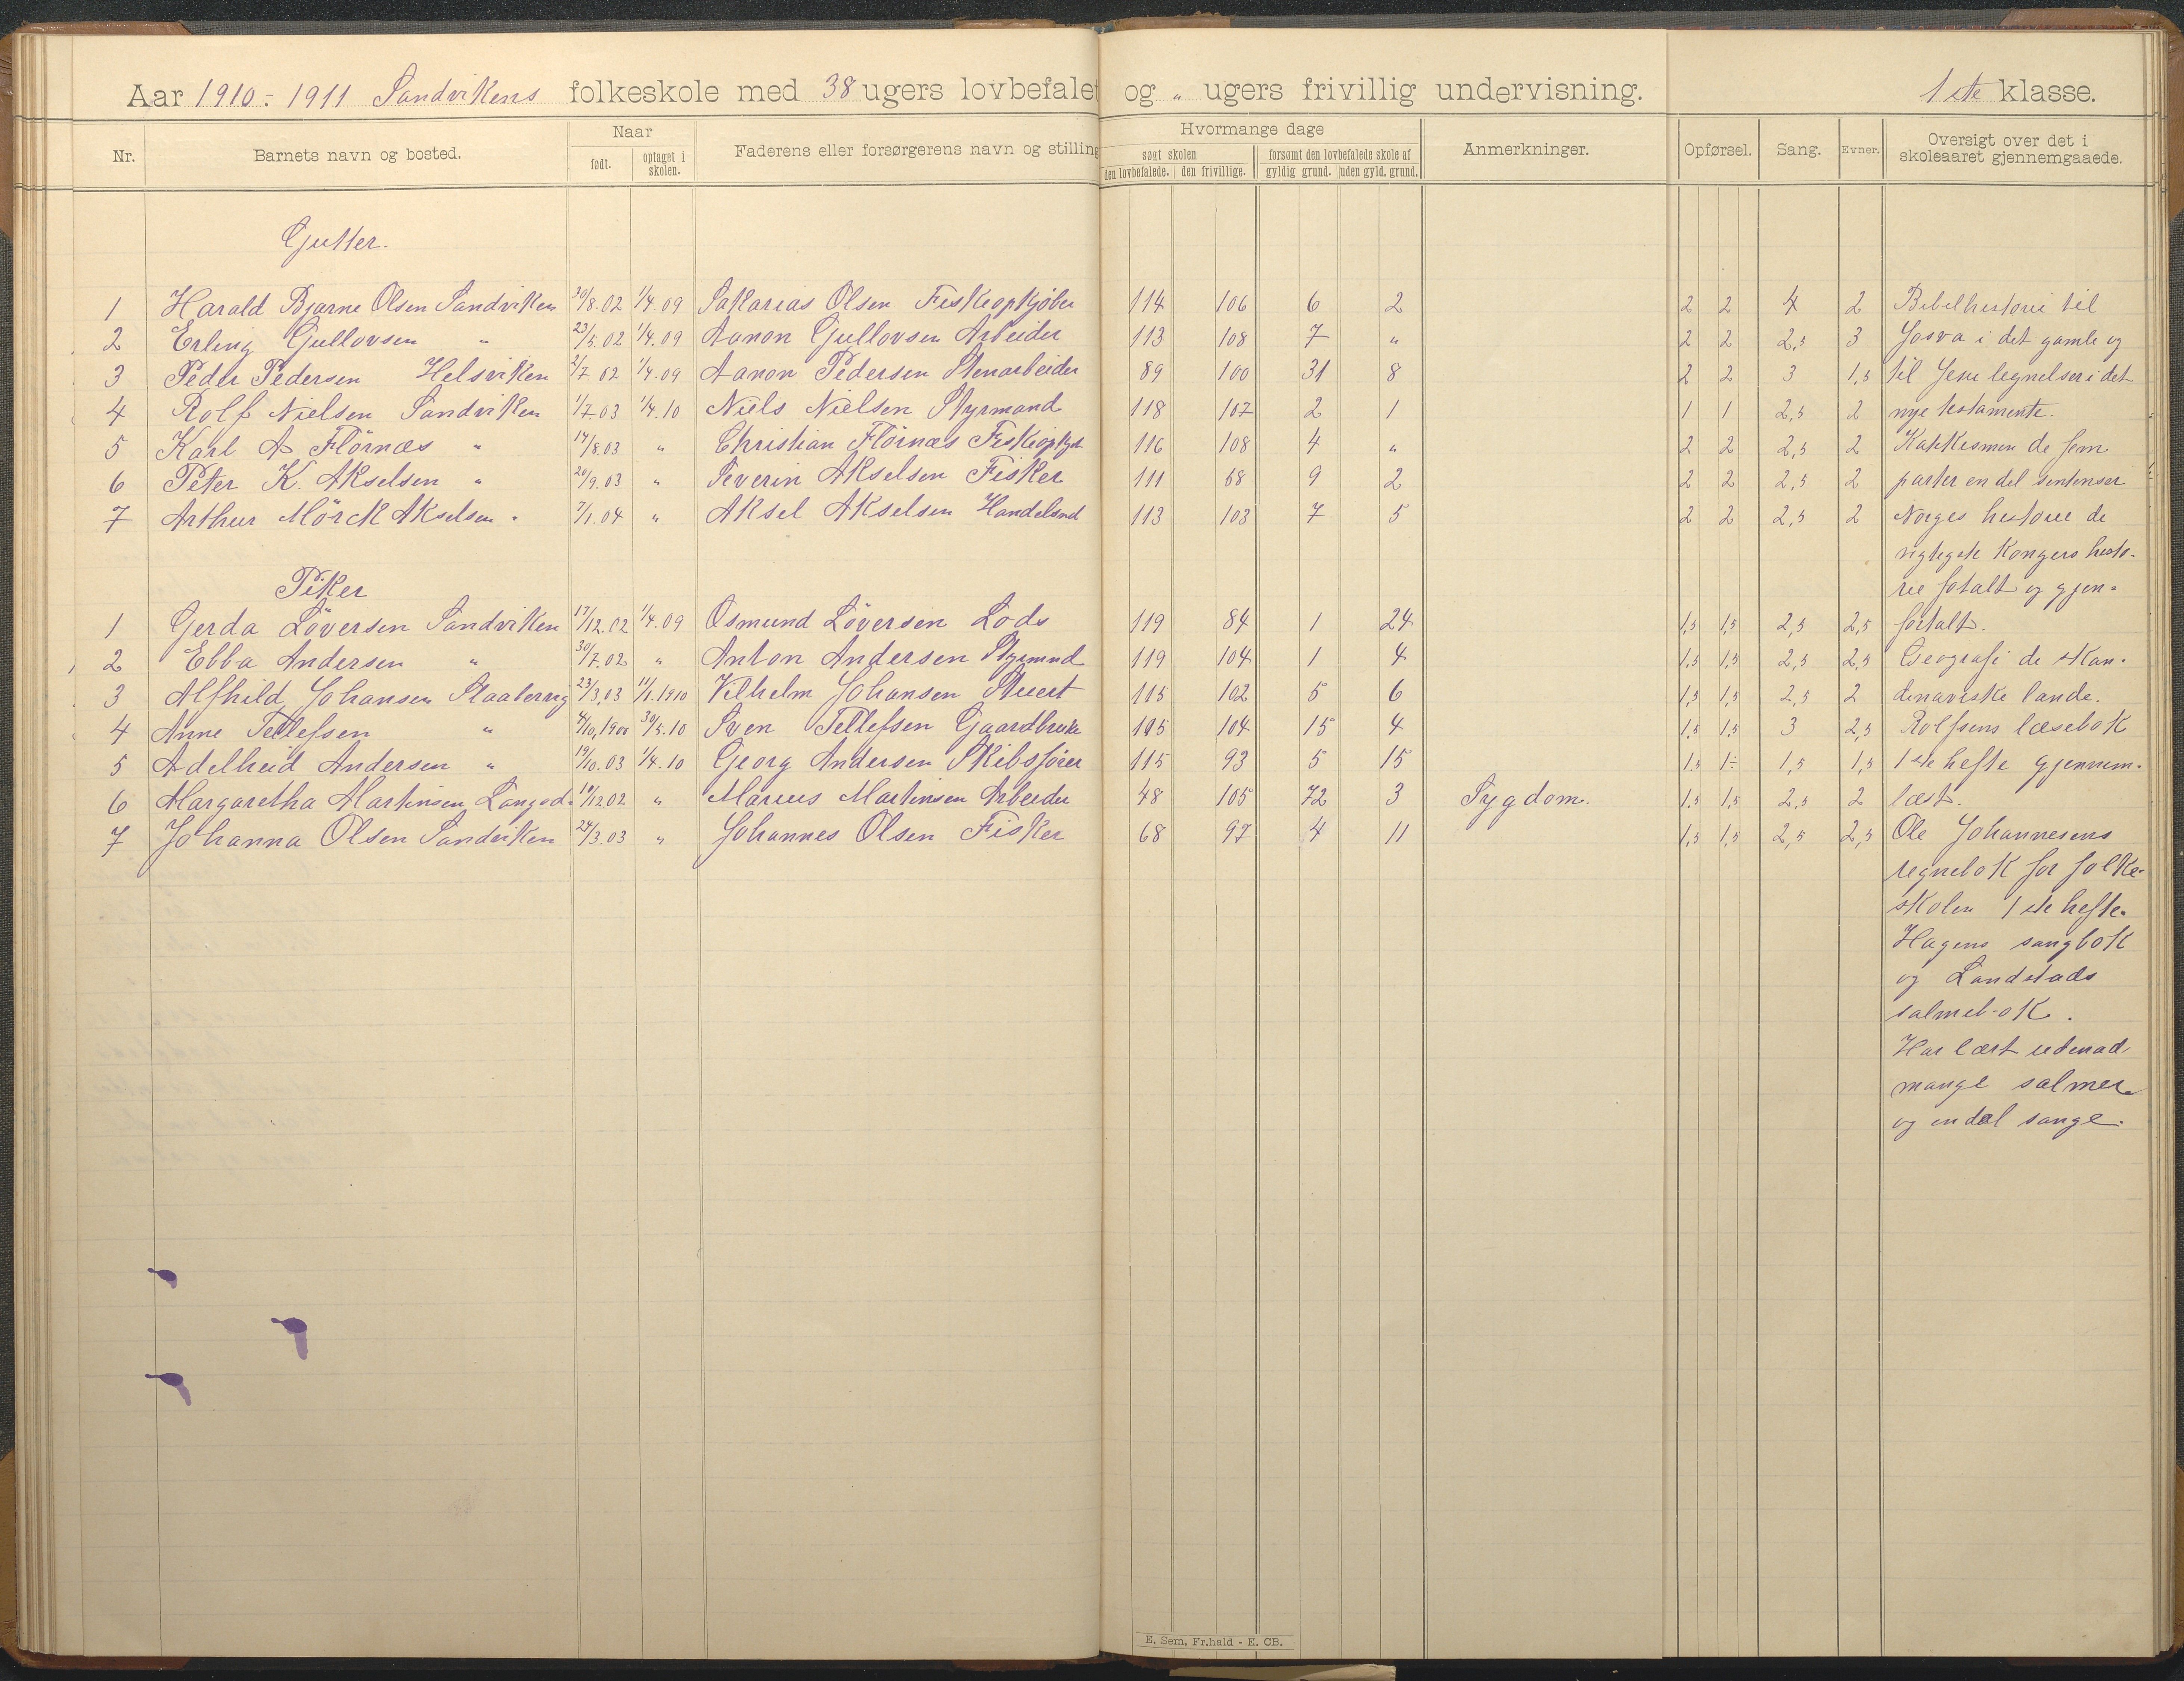 Aar 1910-1911 Sandvikens folkeskole med 38 ugers lovbefalet og „ ugers frivillig undervisning. 1ste klasse.
Nr. Barnets navn og bosted. Naar født. optaget i skolen. Faderens eller forsørgerens navn og stilling Hvormange dage søgt skolen den lovbefalede. den frivillige. forsømt den lovbefalede skole af gyldig grund. uden gyld. grund. Anmerkninger. Opførsel. Sang. Evner. Oversigt over det i skoleaaret gjennemgaaede.
Gutter.
1 Harald Bjarne Olsen Sandviken 30/8.02 1/4.09 Sakarias Olsen Fiskeopkjøber 114 106 6 2 2 2 4 2 Bibelhistorie til
2 Erling Gullovsen „ 23/5.02 1/4.09 Aanon Gullovsen Arbeider 113 108 7 „ 2 2 2,5 3 Josva i det gamle og
3 Peder Pedersen Helsviken 2/7 02 1/4.09 Aanon Pedersen Stenarbeider 89 100 31 8 2 2 3 1,5 til Jesu legnelser i det
4 Rolf Nielsen Sandviken 1/7.03 1/4.10 Niels Nielsen Styrmand 118 107 2 1 1 1 2,5 2 nye testamente.
5 Karl A Flörnæs „ 14/8.03 „ Christian Flörnæs Fiskeopkjøb 116 108 4 „ 2 2 2,5 2 Katkismen de fem
6 Peter K. Akselsen „ 20/9.03 „ Severin Akselsen Fisker 111 68 9 2 2 2 2,5 2 parter en del sentenser
7 Arthur Mörck Akselsen „ 7/1.04 „ Aksel Akselsen Handelsmd 113 103 7 5 2 2 2,5 2 Norges historie de
vigtigste Kongers histo-
rie fotalt og gjen-
Piker
1 Gerda Löversen Sandviken 17/12.02 1/4.09 Osmund Löversen Lods 119 84 1 24 1,5 1,5 2,5 2,5 fortalt.
2 Ebba Andersen „ 30/7.02 „ Anton Andersen Styrmnd 119 104 1 4 1,5 1,5 2,5 2,5 Geografi de skan-
3 Alfhild Johansen Staalevig 23/3,03 11/1.1910 Vilhelm Johansen Stuert 115 102 5 6 1,5 1,5 2,5 2 dinaviske lande.
4 Anne Tellefsen „ 4/10,1900 30/5.10 Sven Tellefsen Gaardbruker 105 104 15 4 1,5 1,5 3 2,5 Rolfsens læsebok
5 Adelheid Andersen „ 19/10.03 1/4.10 Georg Andersen Skibsfører 115 93 5 15 1,5 1÷ 1,5 1,5 1ste hefte gjennem-
6 Margaretha Martinsen Langød. 11/12.02 „ Marius Martinsen Arbeider 48 105 72 3 Sygdom. 1,5 1,5 2,5 2 læst.
7 Johanna Olsen Sandviken 24/3.03 „ Johannes Olsen Fisker 68 97 4 11 1,5 1,5 2,5 2,5 Ole Johannesens
regnebok for folke-
skolen 1ste hefte.
Hagens sangbok
og Landstads
salmebok.
Har lært udenad
mange salmer
og endel sange.
E. Sem, Fr.hald - E. CB.